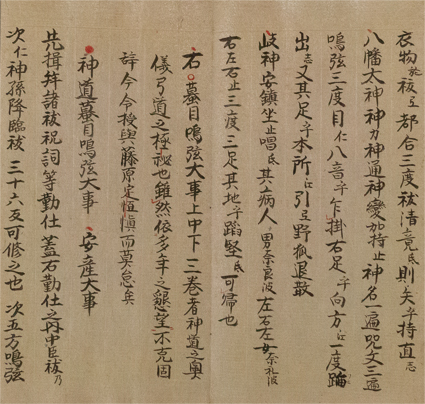 衣物於祓互都合三度祓清竟氐則矢乎持直志
八幡太神神力神通神變加持止神名一遍咒文三遍
鳴弦三度目仁八音乎乍掛右足乎向方江一度踊
出志又其足乎本所江引互野狐退散
岐神安鎮坐止唱氐其上病人男奈良波左右左女奈礼波
右左右止三度三足其地乎踏堅氐可帰也
右蟇目鳴弦大事上中下三巻者神道之奥
儀弓道之極秘也雖然依多年之懇望不克固
辞今令授與藤原定恒慎而莫怠矣
神道蟇目鳴弦大事 安産大事
先揖拜諸祓祝詞等勤仕蓋右勤仕之内中臣祓乃
次仁神孫降臨祓三十六反可修之也 次五方鳴弦